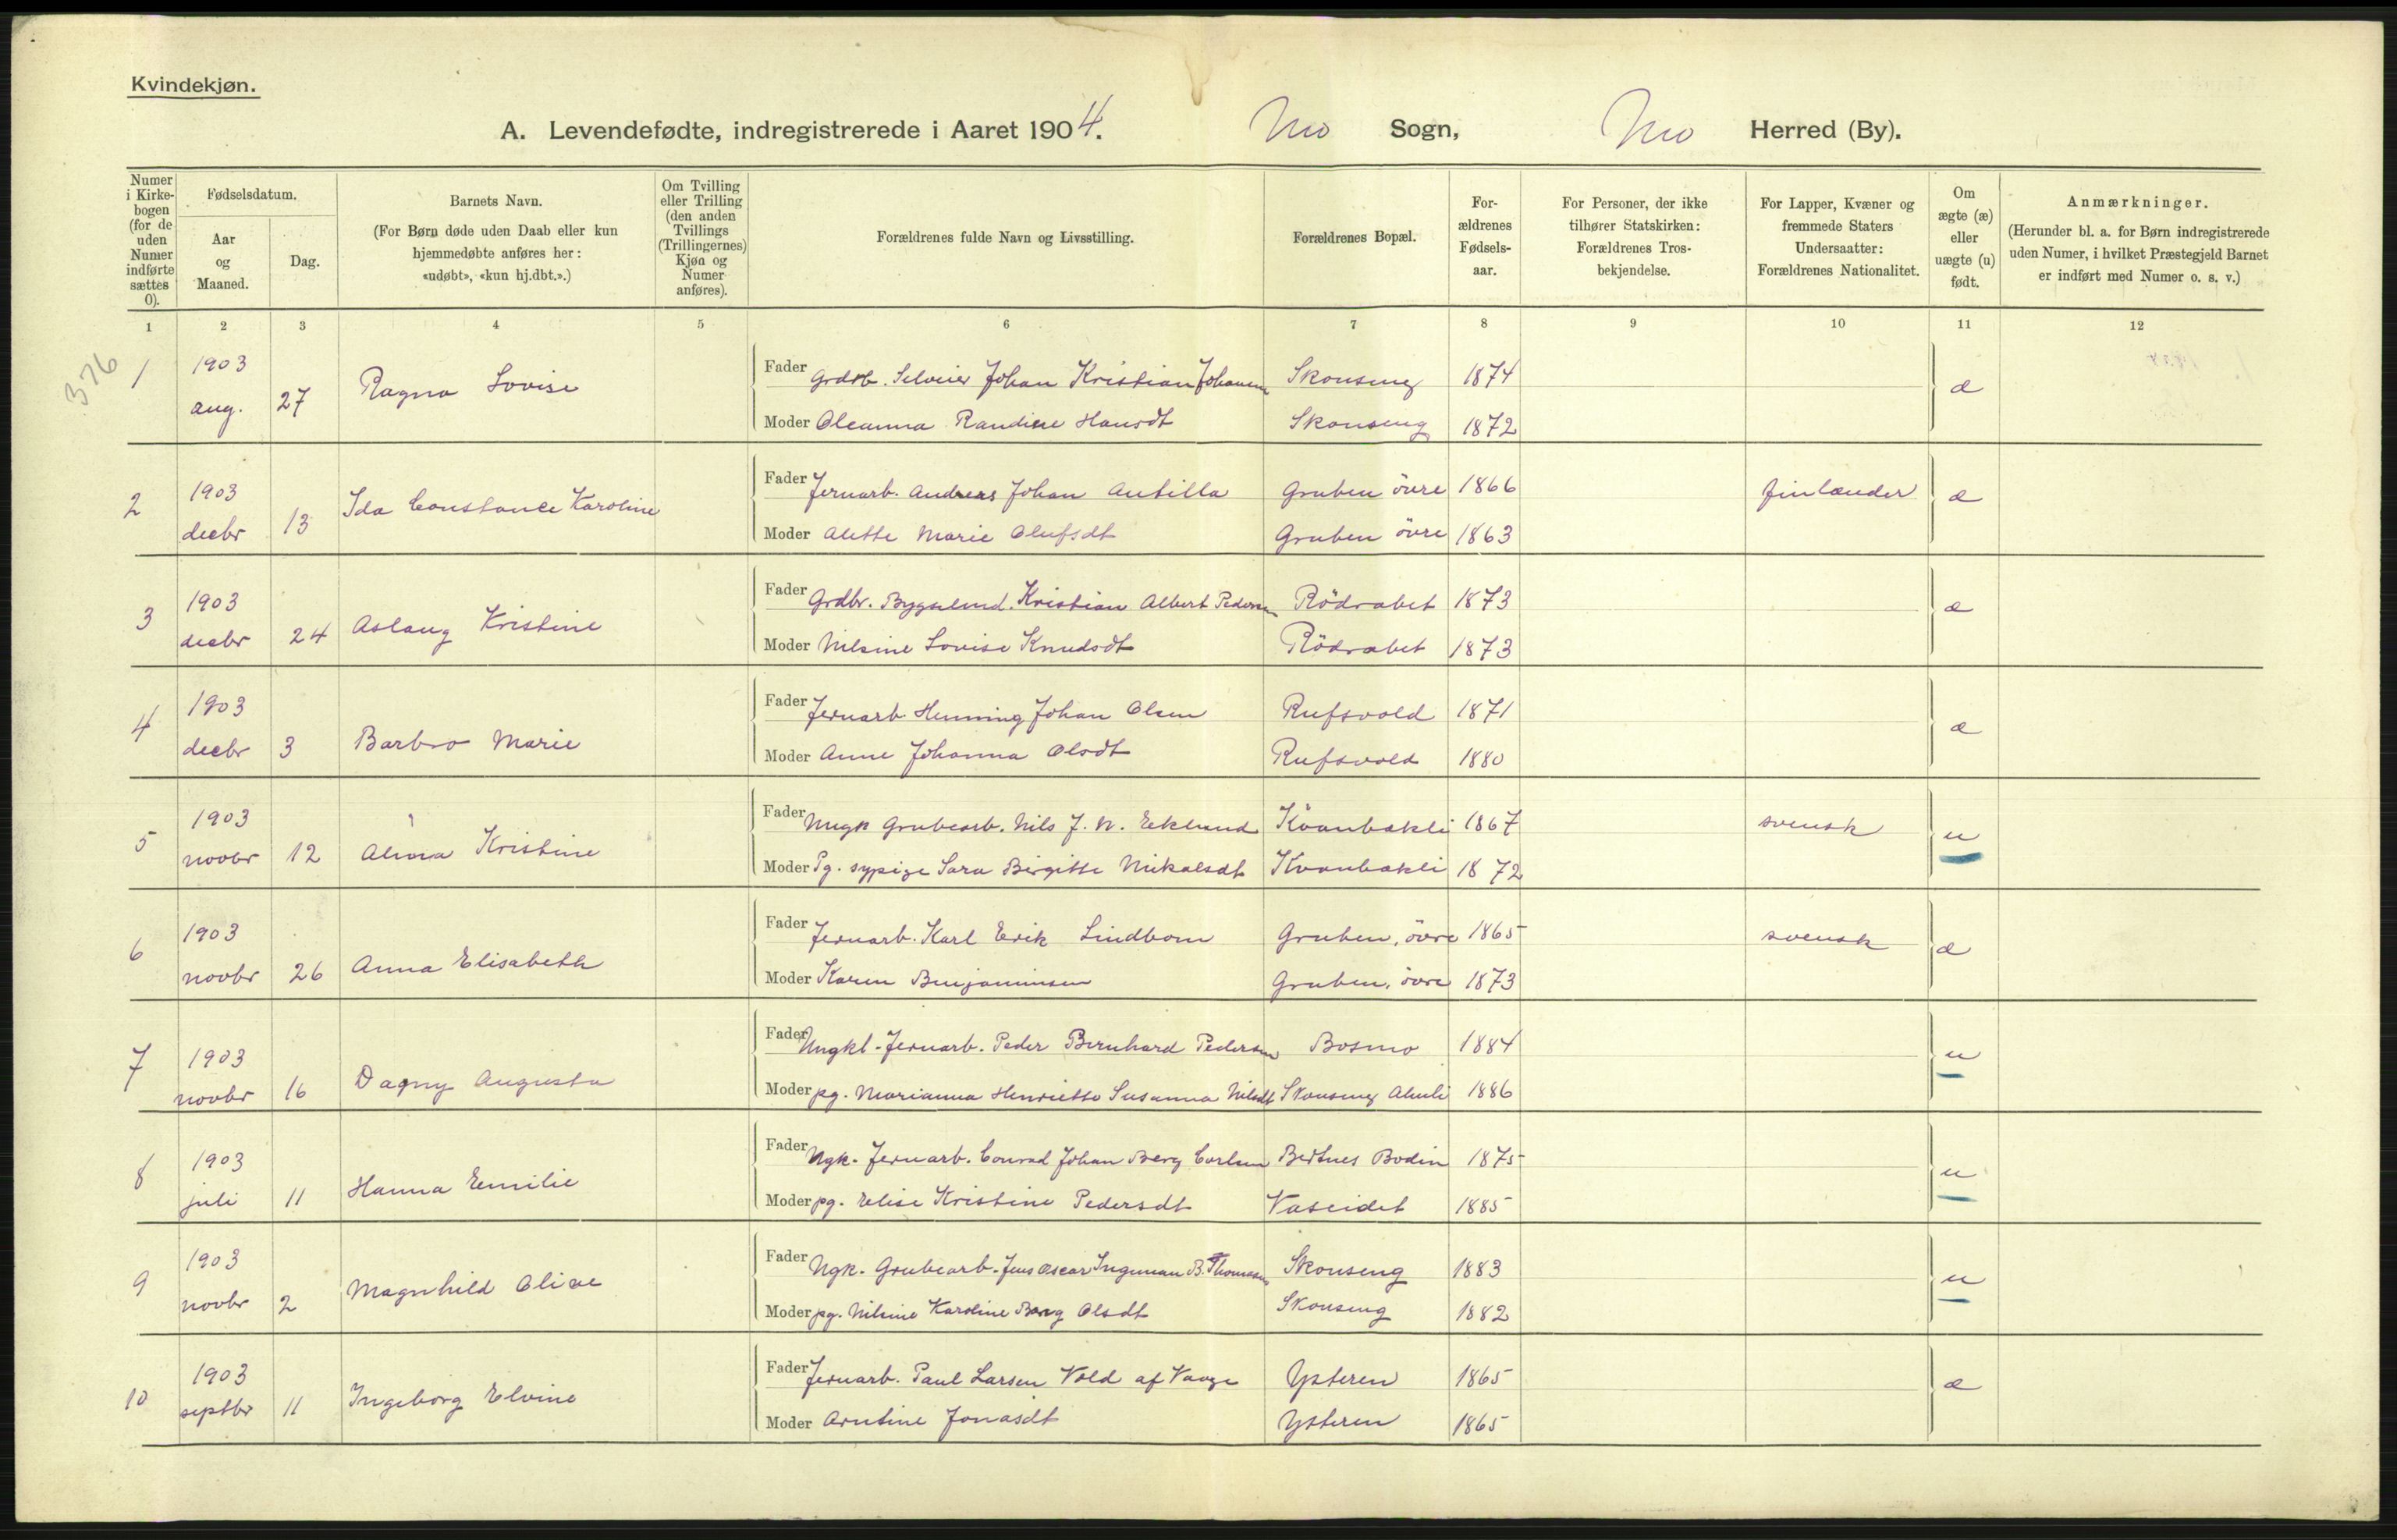 Kvindekjøn.
A. Levendefødte, indregistrerede i Aaret 1904. Mo Sogn, Mo Herred (By).
Numer i Kirkebogen (for de uden Numer indførte sættes 0).
Fødselsdatum.
Aar og Maaned.
Dag.
Barnets Navn.
(For Børn døde uden Daab eller kun hjemmedøbte anføres her: «udøbt», «kun hj.dbt.».)
Om Tvilling eller Trilling (den anden Tvillings (Trillingernes) Kjøn og Numer anføres).
Forældrenes fulde Navn og Livsstilling.
Forældrenes Bopæl.
Forældrenes Fødselsaar.
For Personer, der ikke tilhører Statskirken: Forældrenes Trosbekjendelse.
For Lapper, Kvæner og fremmede Staters Undersaatter: Forældrenes Nationalitet.
Om ægte (æ) eller uægte (u) født.
Anmærkninger.
(Herunder bl. a. for Børn indregistrerede uden Numer, i hvilket Præstegjeld Barnet er indført med Numer o. s. v.)
1 2 3 4 5 6 7 8 9 10 11 12
376
1 1903 aug. 27 Ragna Lovise
Fader Grdb. Selveier Johan Kristian Johansen Skonseng 1874 æ
Moder Oleanna Randine Hansdt Skonseng 1872
2 1903 decbr 13 Ida Constance Karoline
Fader Jernarb. Andreas Johan Antilla Gruben övre 1866 finlænder æ
Moder Alette Marie Olufsdt Gruben övre 1863
3 1903 decbr 24 Aslaug Kristine
Fader Grdbr. Bygselmd. Kristian Albert Pedersen Rödvabet 1873 æ
Moder Nilsine Lovise Knudsdt Rödvabet 1873
4 1903 decbr 3 Barbro Marie
Fader Jernarb. Henning Johan Olsen Rufsvold 1871 æ
Moder Anne Johanna Olsdt Rufsvold 1880
5 1903 novbr 12 Alma Kristine
Fader Ungk Grubearb. Nils J. N. Eklund Kvanbakli 1867 svensk u
Moder Pg. sypige Sara Birgitte Nikalsdt Kvanbakli 1872
6 1903 novbr 26 Anna Elisabeth
Fader Jernarb. Karl Erik Lindbom Gruben, övre 1865 svensk æ
Moder Karen Benjaminsen Gruben, övre 1873
7 1903 novbr 16 Dagny Augusta
Fader Ungkl. Jernarb. Peder Bernhard Pedersen Bosmo 1884 u
Moder pg. Marianna Henriette Susanna Nilsdt Skonseng 1886
8 1903 juli 11 Hanna Emilie
Fader Ngk. Jernarb. Conrad Johan Berg Carlsen Bertnes Bodin 1875 u
Moder pg. Elise Kristine Pedersdt Vaseidet 1885
9 1903 novbr 2 Magnhild Olise
Fader Ngk. Grubearb. Jens Oscar Ingeman B. Thomasen Skonseng 1883 u
Moder pg. Nilsine Karoline Berg Olsdt Skonseng 1882
10 1903 septbr 11 Ingeborg Elvine
Fader Jernarb. Paul Larsen Vold af Vaage Ysteren 1865 æ
Moder Arntine Jonasdt Ysteren 1865